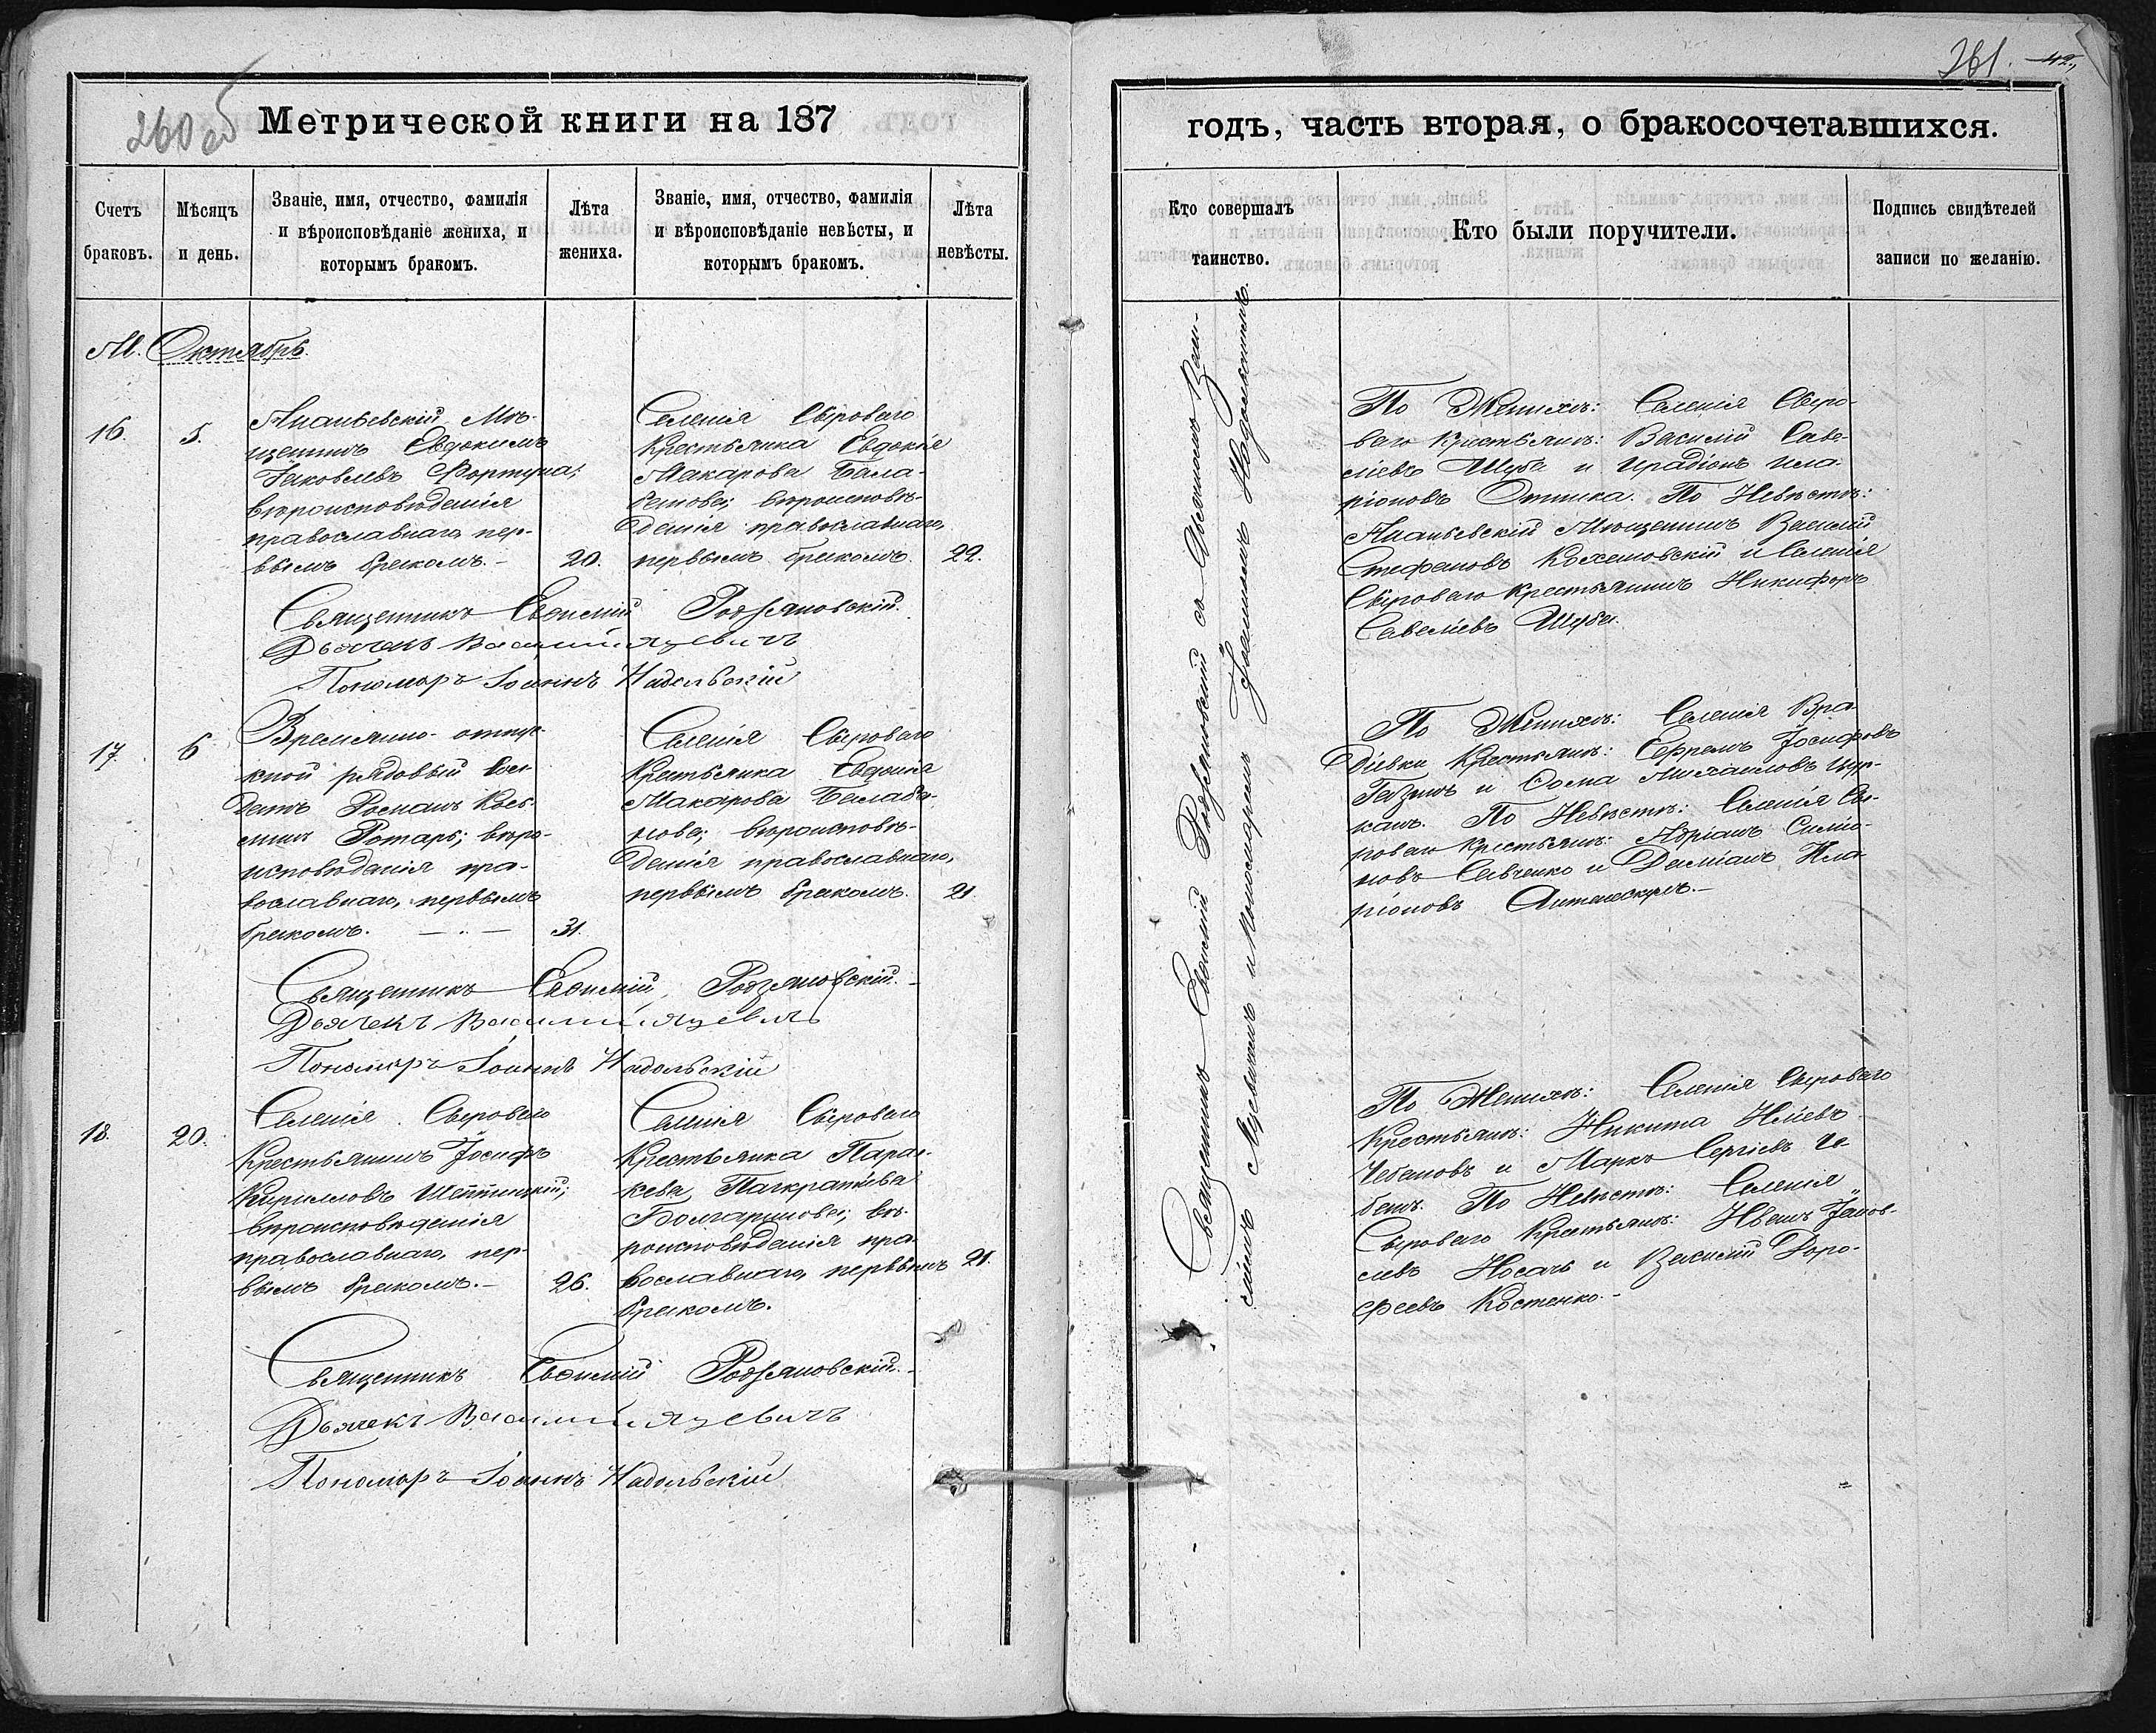 260 об
Метрической книги на 187
Счетъ браковъ.
Мѣсяцъ и день.
Званіе, имя, отчество, фамилія
и вѣроисповѣданіе жениха, и
которымъ бракомъ.
Лѣта жениха.
Званіе, имя, отчество, фамилія
и вѣроисповѣданіе невѣсты, и
которымъ бракомъ.
Лѣта невѣсты.
М. Октябрь.
16.
5.
Ананьевскій Мѣ-
щанинъ Евдокимъ
Іаковлевъ Фортуна;
вѣроисповѣданія
православнаго, пер-
вымъ бракомъ. –
20.
Селенія Сыроваго
Крестьянка Евдокія
Макарова Бала-
банова; вѣроисповѣ-
данія православнаго,
первымъ бракомъ.
22.
Священникъ Евѳимій Родзяновскій.
Дьячекъ Василій
Пономарь Іоаннъ Надольскій
17.
6
Временно-отпус-
кной рядовый Сол-
датъ Романъ Кось-
минъ Ротарь; вѣро-
исповѣданія пра-
вославнаго, первымъ
бракомъ.
31.
Селенія Сыроваго
Крестьянка Евдокія
Макарова Балаба-
нова; вѣроисповѣ-
данія православнаго,
первымъ бракомъ.
21.
Священникъ Евѳимій Родзяновскій. –
Дьячекъ Василій
Пономарь Іоаннъ Надольскій
18.
20.
Селенія Сыроваго
Крестьянинъ Іосифъ
Кирилловъ
вѣроисповѣданія
православнаго, пер-
вымъ бракомъ. –
26.
Селенія Сыроваго
Крестьянка Парас-
кева Панкратіева
Болгаринова; вѣ-
роисповѣданія пра-
вославнаго, первымъ
бракомъ.
21.
Священникъ Евѳимій Родзяновскій. –
Дьячекъ Василій
Пономарь Іоаннъ Надольскій
261. 42.
годъ, часть вторая, о бракосочетавшихся.
Кто совершалъ таинство.
Кто были поручители.
Подпись свидѣтелей
записи по желанію.
Священникъ Евѳимій Родзяновскій со Дьячкомъ Васи-
ліемъ и Пономаремъ Іоанномъ Надольскимъ.
По Женихѣ: Селенія Сыро-
ваго Крестьяне: Василій Саве-
ліевъ Шуба и Иродіонъ Ила-
ріоновъ По Невѣстѣ:
Ананьевскій Мѣщанинъ Василій
Стефановъ Кохановскій и Селенія
Сыроваго Крестьянинъ Никифоръ
Савеліевъ Шуба.
По Женихѣ: Селенія Вра-
діевки Крестьяне: Ефремъ Іосифовъ
и Ѳома Михаиловъ Цур-
канъ. По Невѣстѣ: Селенія Сы-
роваго Крестьяне: Адріанъ Симео-
новъ Савченко и Даміанъ Ила-
ріоновъ
По Женихѣ: Селенія Сыроваго
Крестьяне: Никита Иліевъ
Чебановъ и Марко Сергіевъ Че-
банъ. По Невѣстѣ: Селенія
Сыроваго Крестьяне: Иванъ Іаков-
левъ Носачъ и Василій Доро-
феевъ Костенко. –